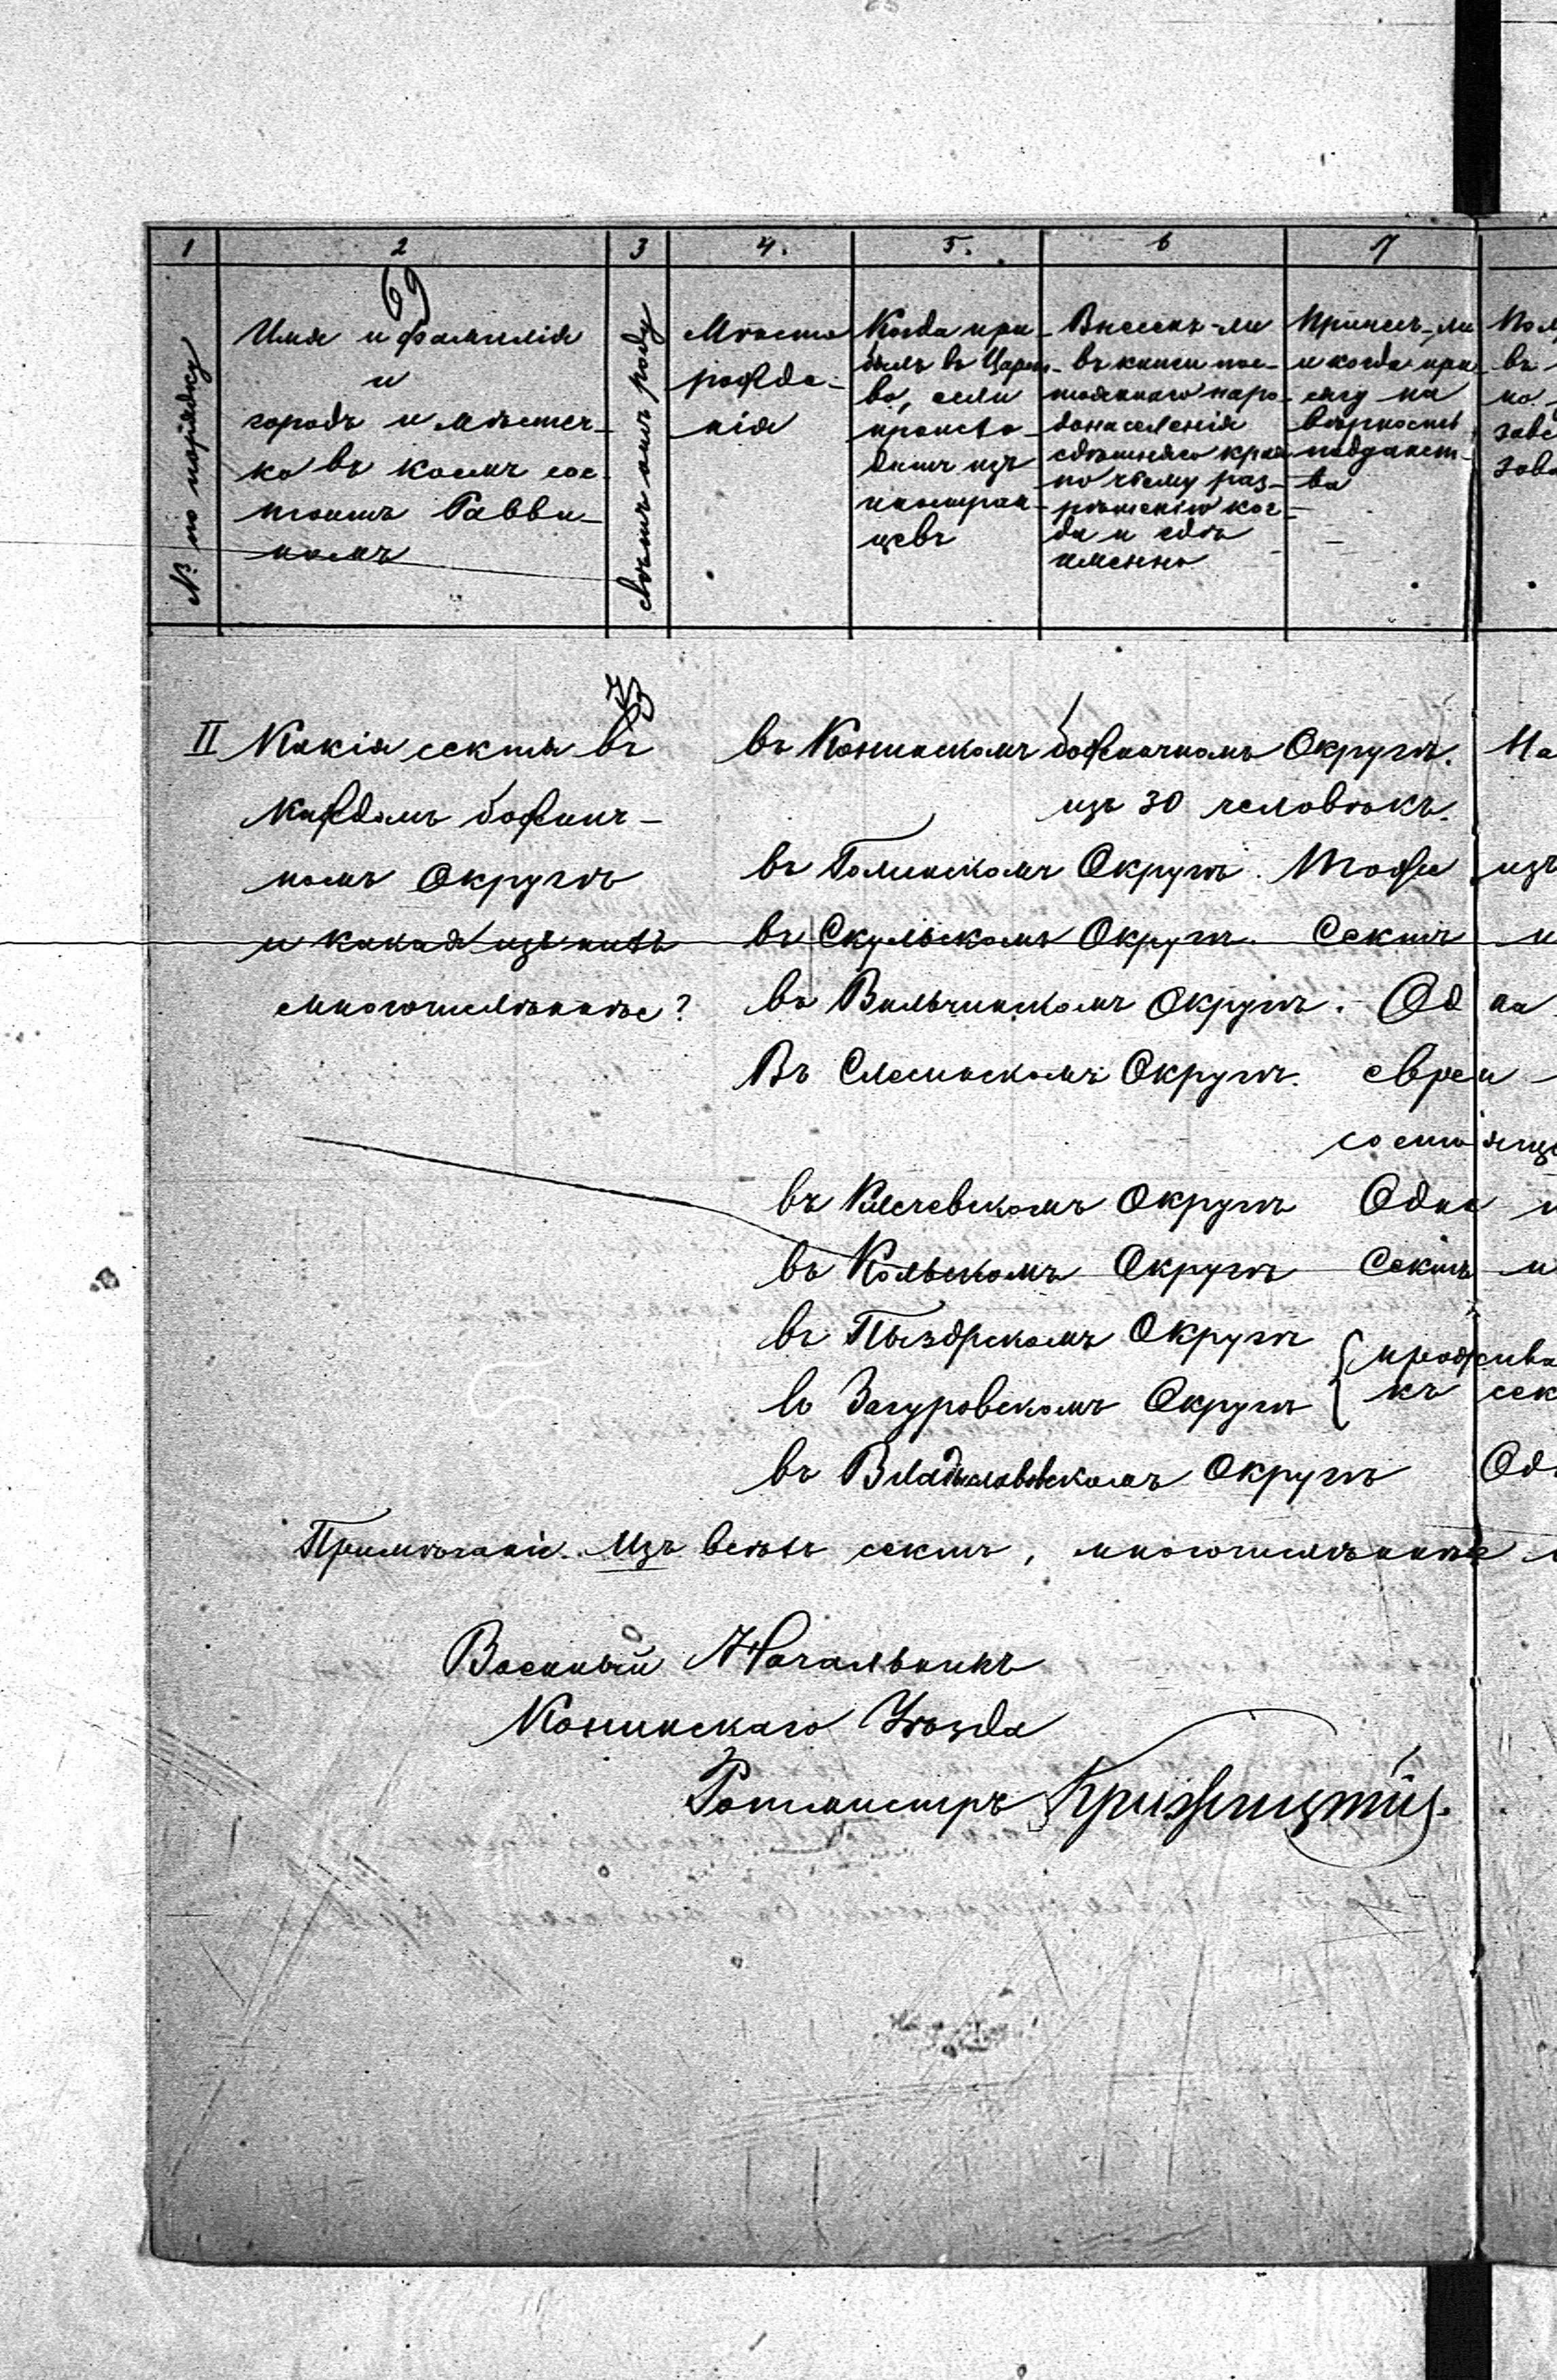 1 2 3 4. 5. 6 7
69
№ по порядку
Имя и фамилія
и
городъ и местеч-
ко въ коемъ сос-
тоитъ Равви-
номъ
сколько отъ роду
Мѣсто
рожде-
нія
Когда при-
былъ въ Царст-
во, если
происхо-
дитъ изъ
иностран-
цевъ
Внесенъ-ли
въ книги пос-
тояннаго наро-
донаселенія
здѣшняго края
по чьему раз-
рѣшенію ког-
да и гдѣ
именно
Принялъ-ли
и когда при-
сягу на
вѣрность
подданст-
ва
въ
но
заве
73
II Какія секты въ
каждомъ божнич-
номъ Округѣ
и какая изъ нихъ
многочисленнѣе?
въ Конинскомъ божничномъ Округѣ. На
изъ 30 человѣкъ.
въ Голинскомъ Округѣ. Тоже изъ
въ Скульскомъ Округѣ. Сектъ н
въ Вильчинскомъ Округѣ. Одна
Въ Слесинскомъ Округѣ. евреи
состояще
въ Клечевскомъ Округѣ Одна и
въ Кольскомъ Округѣ Сектъ н
въ Пыздрскомъ Округѣ
въ Загуровскомъ Округѣ
прожива
къ сек
въ Владыславовскомъ Округѣ Од
Примѣчаніе. Изъ всѣхъ сектъ, многочисленнѣе
Военный Начальникъ
Конинскаго Уѣзда
Ротмистръ